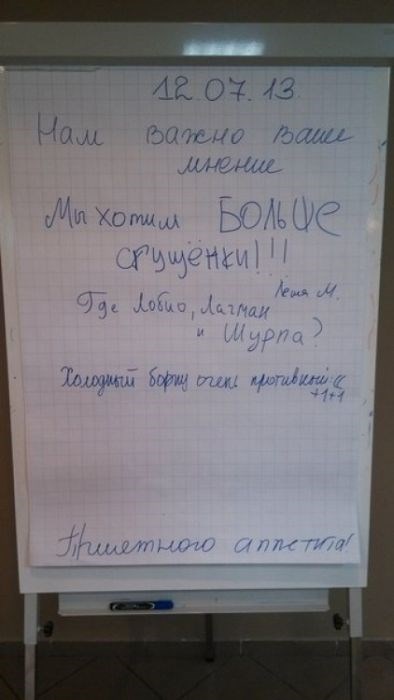 12.07.13.
Нам важно Ваше
мнение
Мы хотим БОЛЬШЕ
сгущёнки!!!
Лёша М.
Где Лобио, Лагман
и Шурпа?
Холодный борщ очень противный :((
+1+1
Приятного аппетита!